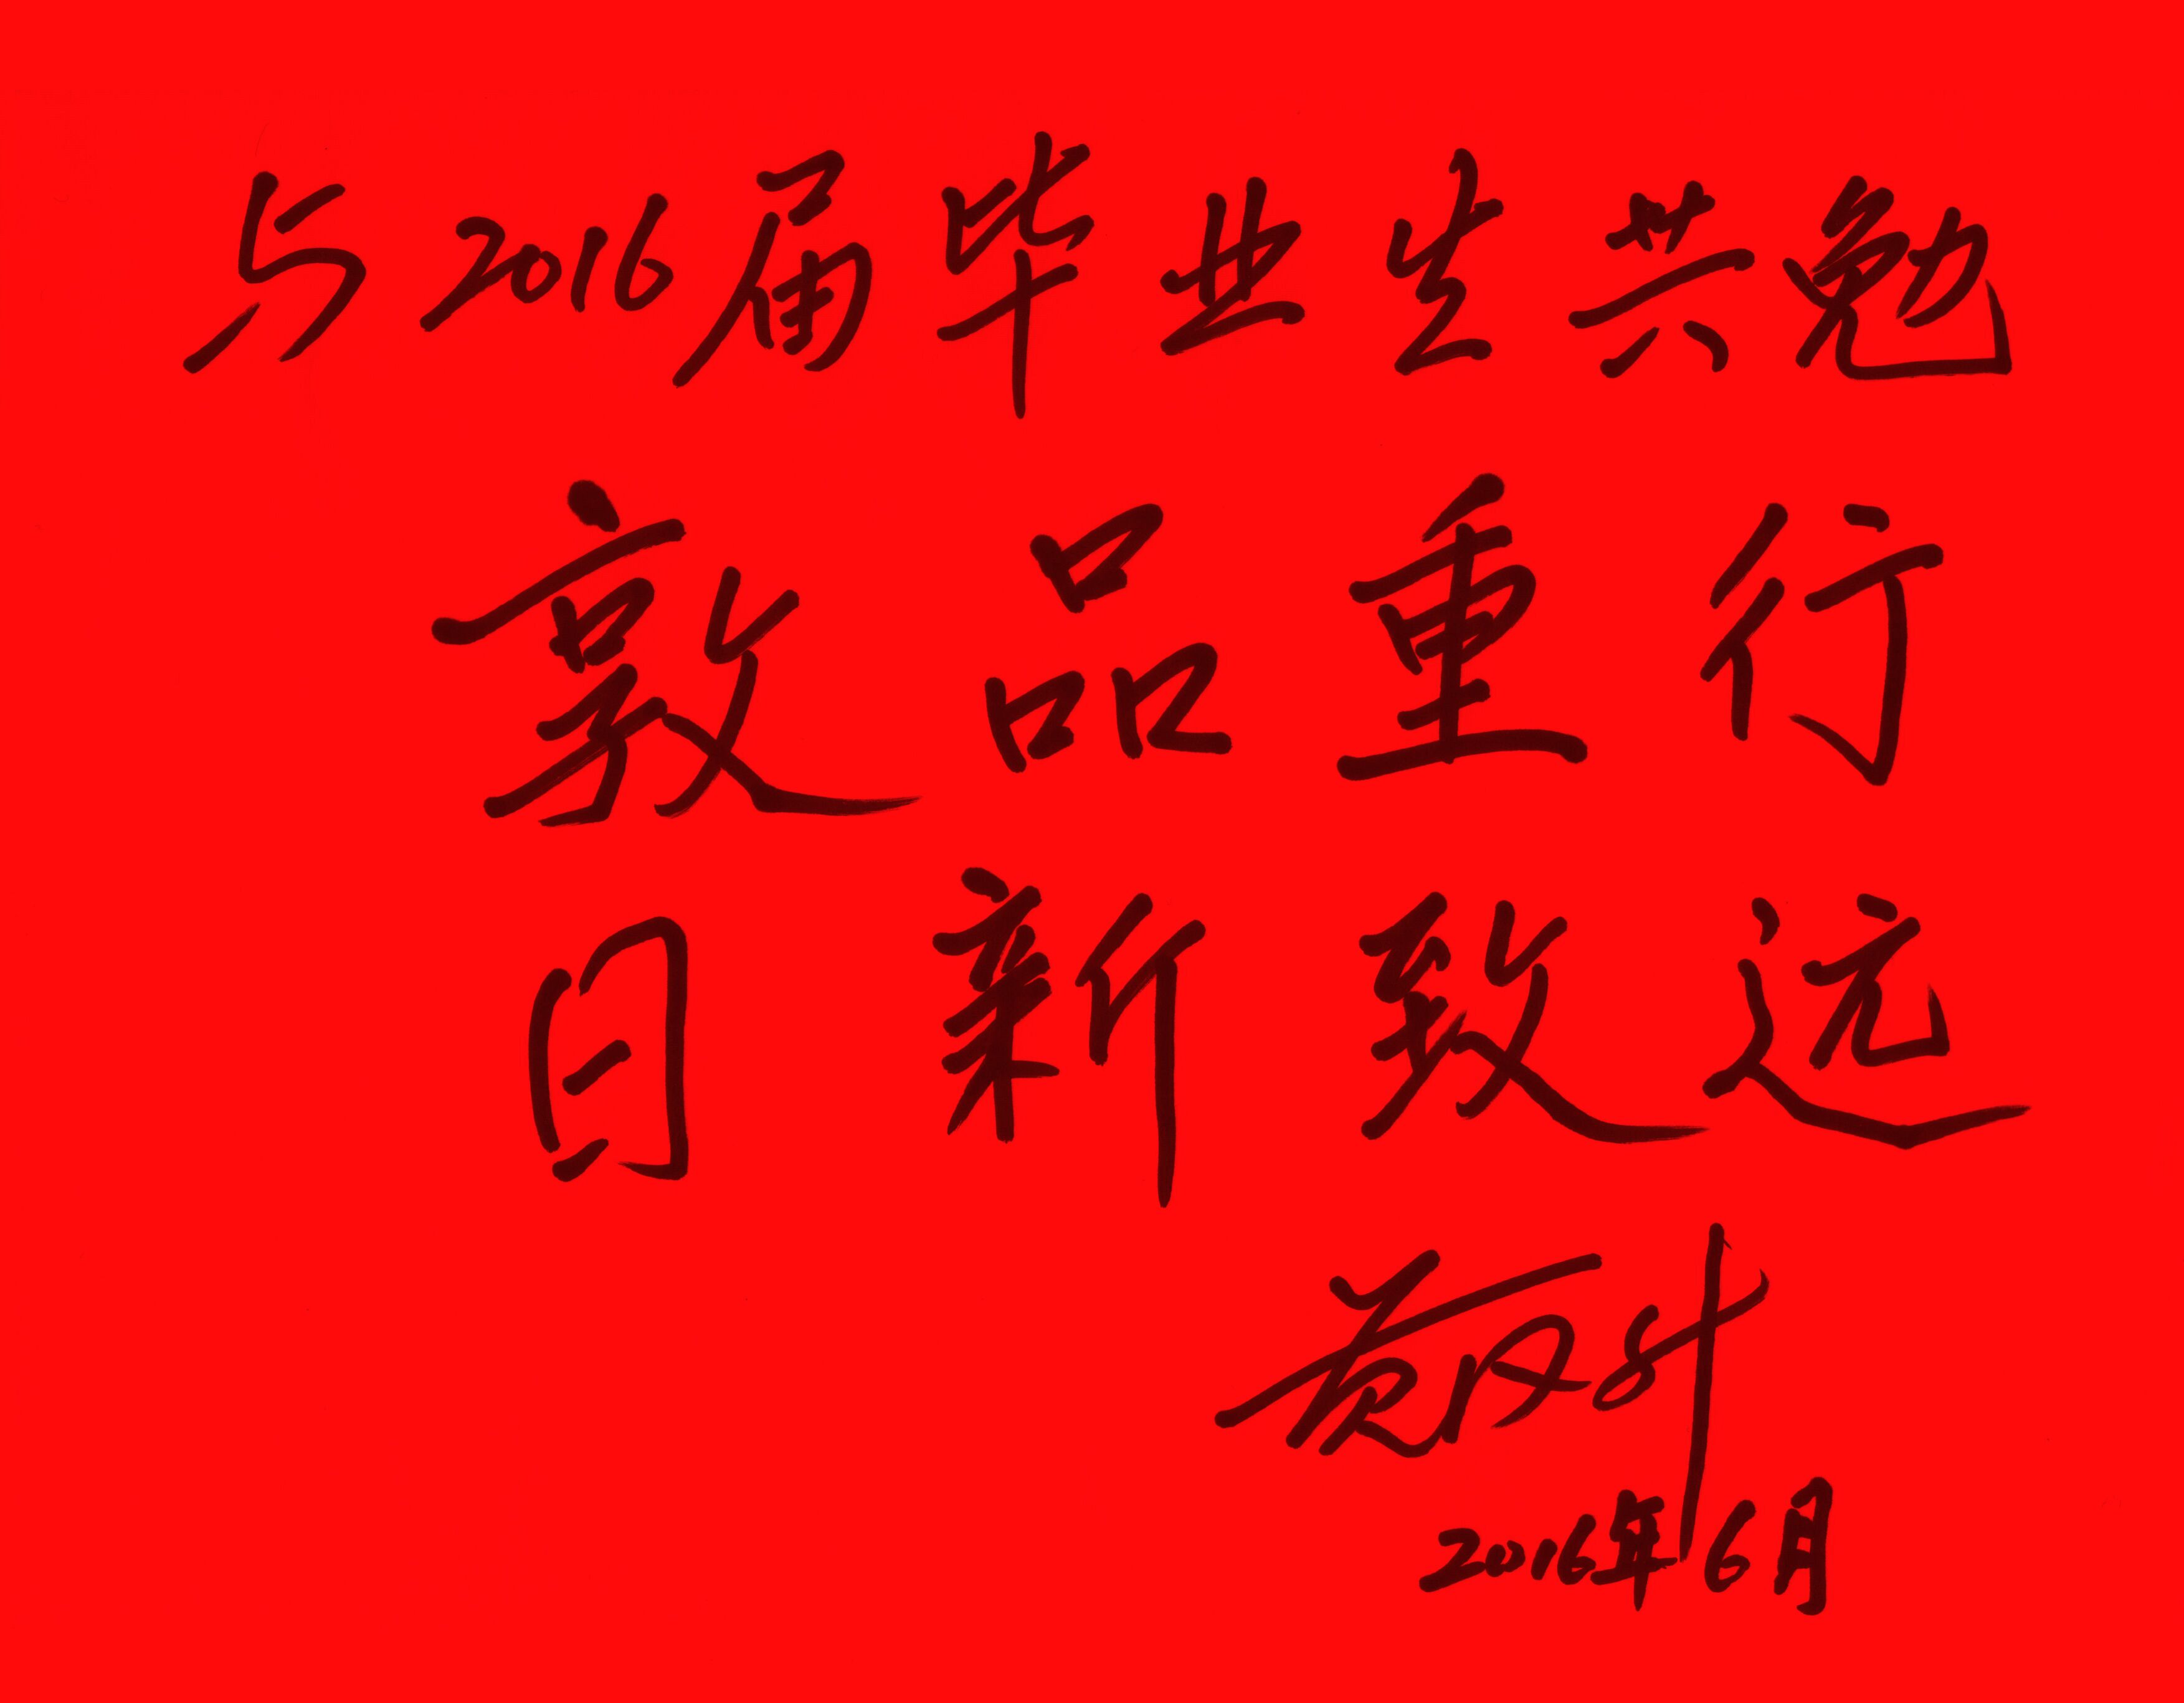 与2016届毕业生共勉
敦品重行
日新致远
2016年6月